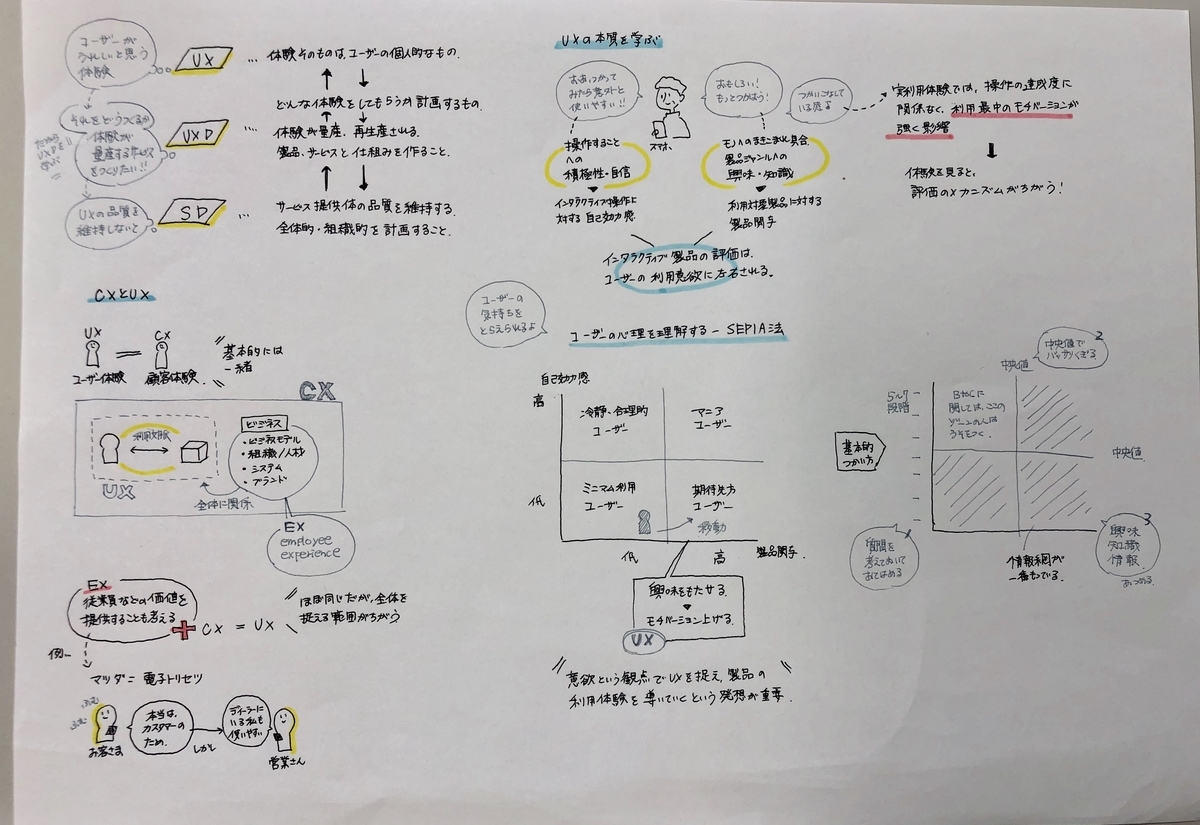 ユーザーが
うれしいと思う
体験
UX
… 体験そのものは、ユーザーの個人的なもの。
どんな体験をしてもらうか計画するもの。
それをどうつくるか
体験が
量産するサービス
をつくりたい!!
UXD
… 体験が量産、再生産される。
製品、サービスと仕組みを作ること。
UXの品質を
維持しないと
SD
… サービス提供体の品質を維持する。
全体的・組織的を計画すること。
CXとUX
UX
ユーザー体験
CX
顧客体験
基本的には
一緒
CX
利用文脈
UX
ビジネス
・ビジネスモデル
・組織/人材
・システム
・ブランド
全体に関係
EX
employee
experience
EX
従業員などの価値を
提供することも考える
+ CX = UX
ほぼ同じだが、全体を
捉える範囲がちがう
例
マツダ = 電子トリセツ
ふむ
ふむ
お客さま
本当は、
カスタマーの
ため。
しかし
ディーラーに
いる私も
使いやすい
営業さん
UXの本質を学ぶ
おお、つかって
みたら意外と
使いやすい!!
スマホ
おもしろい!
もっとつかおう!
つかいこなして
いる感よ
操作すること
への
積極性・自信
インタラクティブ操作に
対する自己効力感
モノへのまきこまれ具合
製品ジャンルへの
興味・知識
利用対象製品に対する
製品関与
インタラクティブ製品の評価は、
ユーザーの利用意欲に左右される。
実利用体験では、操作の達成度に
関係なく、利用最中のモチベーションが
強く影響
体験を見ると、
評価のメカニズムがちがう!
ユーザーの
気持ちを
とらえられるよ
ユーザーの心理を理解する ー SEPIA法
自己効力感
高
低
冷静・合理的
ユーザー
マニア
ユーザー
ミニマム利用
ユーザー
期待先方
ユーザー
移動
低
高
製品関与
興味をもたせる
モチベーション上げる。
UX
意欲という観点でUXを捉え、製品の
利用体験を導いていくという発想が重要。
中央値で
バッサリくぎる
2
中央値
5~7
段階
BとCに
関しては、ここの
ゾーンの人は
うそをつく。
中央値
基本的
つかい方
質問を
考えておいて
あてはめる
情報網が
一番もでる。
3
興味
知識
情報
あつめる